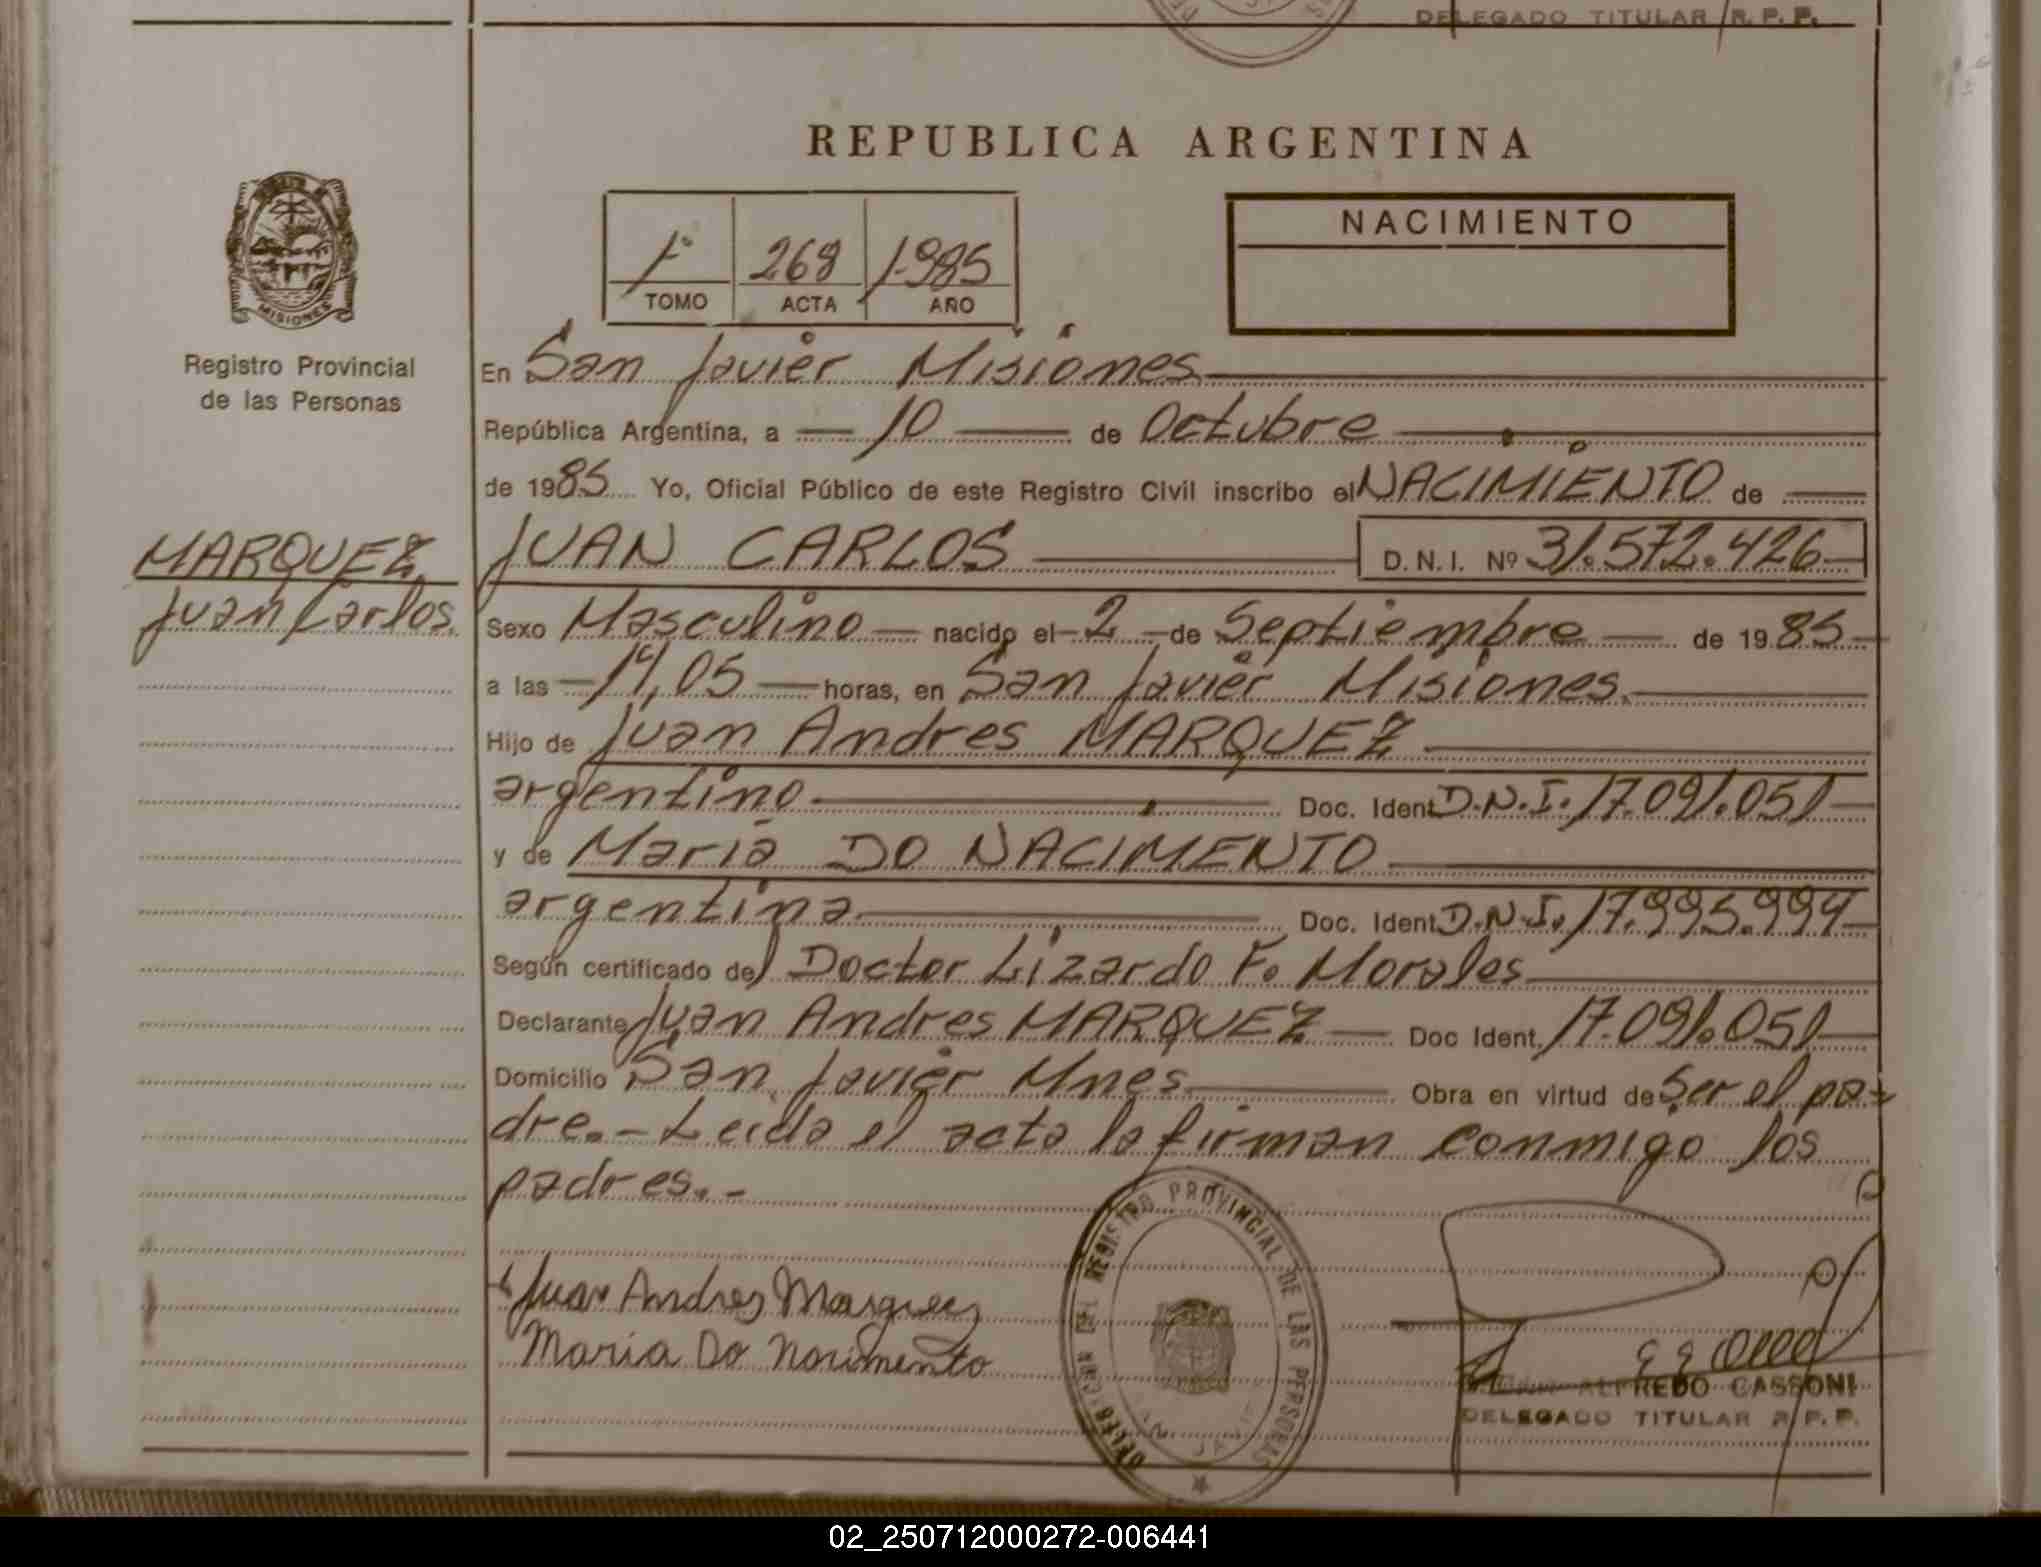 DELEGADO TITULAR R. P. P.
REPUBLICA ARGENTINA
MISIONES
Registro Provincial
de las Personas
1º 268 1985
TOMO ACTA AÑO
NACIMIENTO
En San Javier Misiones
República Argentina, a 10 de Octubre
de 1985 Yo, Oficial Público de este Registro Civil inscribo el NACIMIENTO de
MARQUEZ
Juan Carlos
JUAN CARLOS D.N.I. Nº 31.572.426
Sexo Masculino nacido el 2 de Septiembre de 1985
a las 14,05 horas, en San Javier Misiones.
Hijo de Juan Andres MARQUEZ
argentino Doc. Ident. D.N.I. 17.091.051
y de Maria DO NACIMENTO
argentina Doc. Ident. D.N.I. 17.995.994
Según certificado del Doctor Lizardo F. Morales
Declarante Juan Andres MARQUEZ Doc Ident. 17.091.051
Domicilio San Javier Mnes Obra en virtud de Ser el pa-
dre.- Leida el acta la firman conmigo los
padres.-
Juan Andres Marquez
Maria Do Nacimento
DELEGACION DEL REGISTRO PROVINCIAL DE LAS PERSONAS
SAN JAVIER
ALFREDO CASSONI
DELEGADO TITULAR R. P. P.
02_250712000272-006441